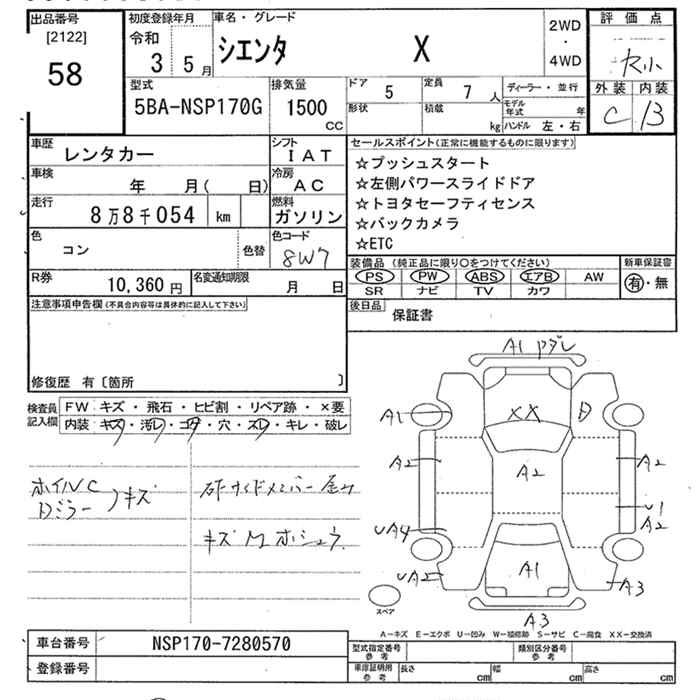 出品番号 初度登録年月 車名・グレード 2WD ・ 4WD 評価点
[2122]
58
令和 3 5月
シエンタ X
外装 内装
C B
型式 排気量 ドア 5 定員 7人 ディーラー・並行
5BA-NSP170G 1500 CC
形状 積載 kg モデル年式 年
ハンドル 左・右
車歴 レンタカー シフト IAT
車検 年 月( 日) 冷房 AC
走行 8万8千054 km 燃料 ガソリン
色 コン 色替 色コード 8W7
R券 10,360円 名変通知期限 月 日
セールスポイント(正常に機能するものに限ります)
☆プッシュスタート
☆左側パワースライドドア
☆トヨタセーフティセンス
☆バックカメラ
☆ETC
装備品 (純正品に限り○をつけてください) 新車保証書
PS PW ABS エアB AW 有・無
SR ナビ TV カワ
後日品 保証書
注意事項申告欄(不具合内容等は具体的に記入して下さい)
修復歴 有〔箇所 〕
検査員記入欄 FW キズ・飛石・ヒビ割・リペア跡・×要
内装 キズ・汚レ・コゲ・穴・ズレ・キレ・破レ
ホイルC
Dミラー
キズ
キズ M ホシュウ
A1
A1
XX
A2
A2
A2
U1
A2
UA4
UA2
A1
A3
A3
スペア
A-キズ E-エクボ U-凹み W-補修跡 S-サビ C-腐食 XX-交換済
車台番号 NSP170-7280570
登録番号
型式指定番号 参考 類別区分番号 参考
車庫証明用 参考 長さ cm 幅 cm 高さ cm